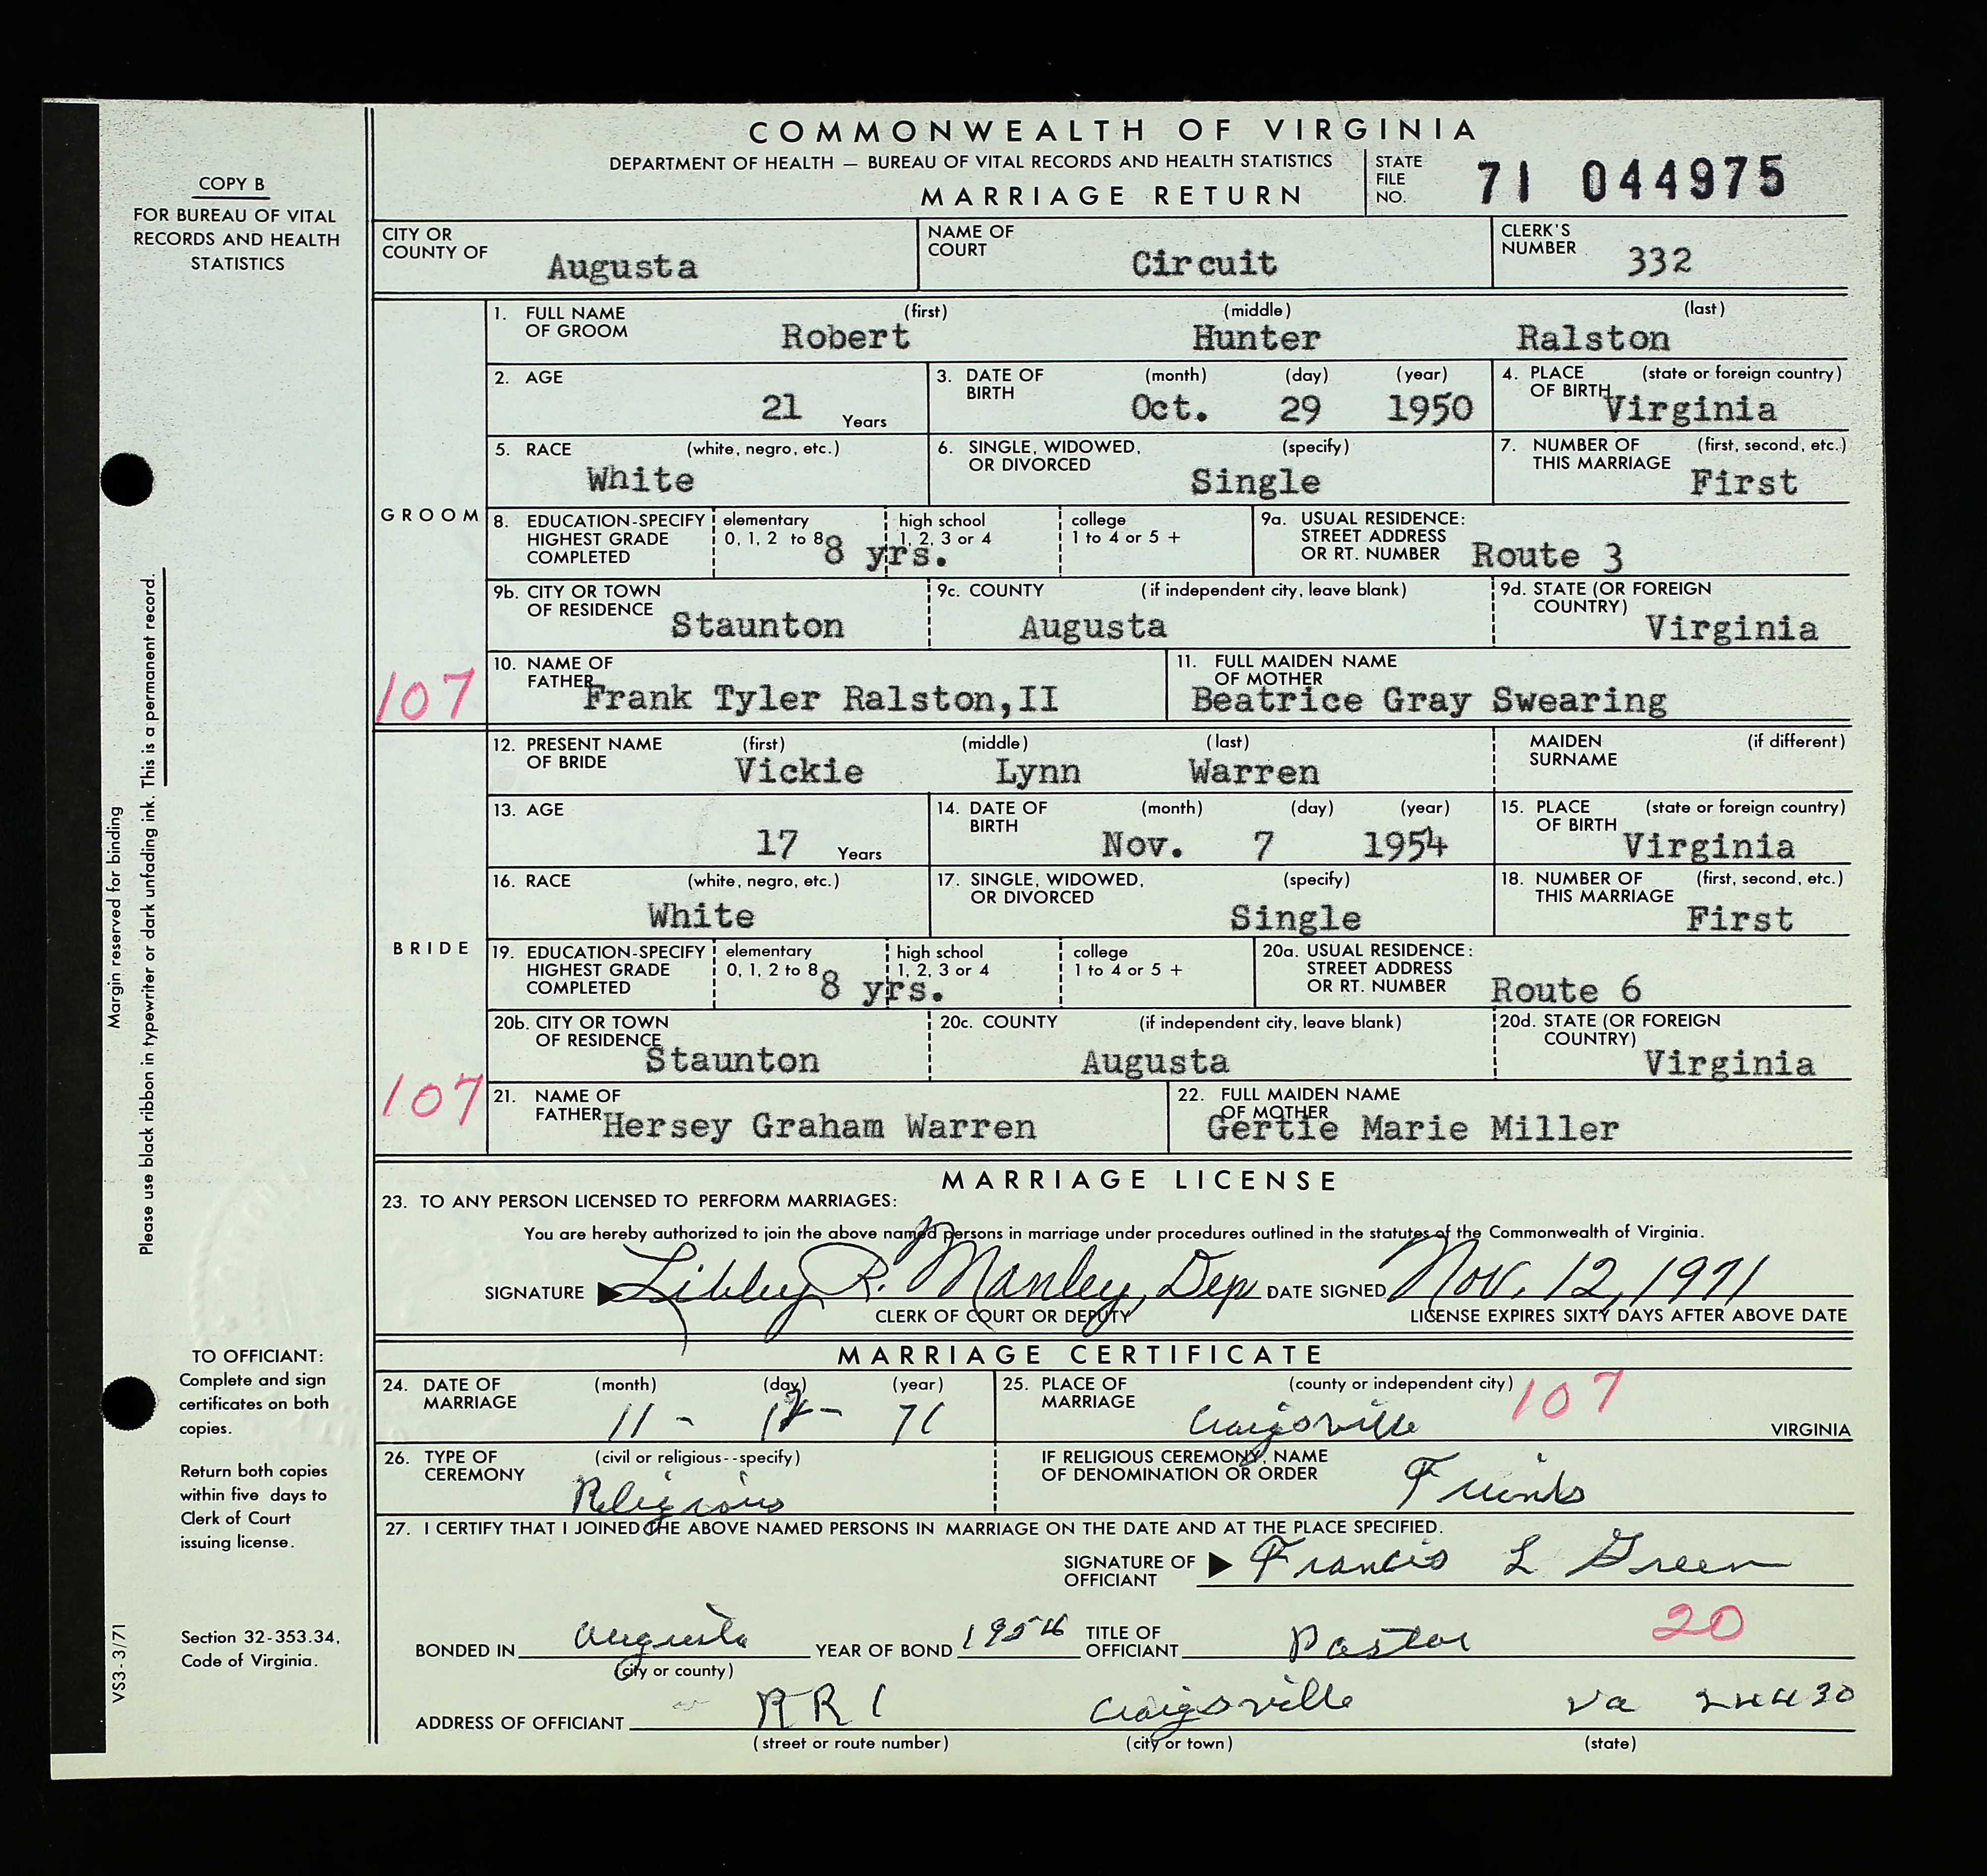 COMMONWEALTH OF VIRGINIA
DEPARTMENT OF HEALTH — BUREAU OF VITAL RECORDS AND HEALTH STATISTICS
MARRIAGE RETURN
STATE FILE NO. 71 044975
COPY B
FOR BUREAU OF VITAL
RECORDS AND HEALTH
STATISTICS
CITY OR COUNTY OF Augusta
NAME OF COURT Circuit
CLERK'S NUMBER 332
GROOM
1. FULL NAME OF GROOM (first) Robert (middle) Hunter (last) Ralston
2. AGE 21 Years
3. DATE OF BIRTH (month) Oct. (day) 29 (year) 1950
4. PLACE OF BIRTH (state or foreign country) Virginia
5. RACE (white, negro, etc.) White
6. SINGLE, WIDOWED, OR DIVORCED (specify) Single
7. NUMBER OF THIS MARRIAGE (first, second, etc.) First
8. EDUCATION-SPECIFY HIGHEST GRADE COMPLETED elementary 0, 1, 2 to 8 8 yrs. high school 1, 2, 3 or 4 college 1 to 4 or 5 +
9a. USUAL RESIDENCE: STREET ADDRESS OR RT. NUMBER Route 3
9b. CITY OR TOWN OF RESIDENCE Staunton
9c. COUNTY (if independent city, leave blank) Augusta
9d. STATE (OR FOREIGN COUNTRY) Virginia
107
10. NAME OF FATHER Frank Tyler Ralston,II
11. FULL MAIDEN NAME OF MOTHER Beatrice Gray Swearing
BRIDE
12. PRESENT NAME OF BRIDE (first) Vickie (middle) Lynn (last) Warren
MAIDEN SURNAME (if different)
13. AGE 17 Years
14. DATE OF BIRTH (month) Nov. (day) 7 (year) 1954
15. PLACE OF BIRTH (state or foreign country) Virginia
16. RACE (white, negro, etc.) White
17. SINGLE, WIDOWED, OR DIVORCED (specify) Single
18. NUMBER OF THIS MARRIAGE (first, second, etc.) First
19. EDUCATION-SPECIFY HIGHEST GRADE COMPLETED elementary 0, 1, 2 to 8 8 yrs. high school 1, 2, 3 or 4 college 1 to 4 or 5 +
20a. USUAL RESIDENCE: STREET ADDRESS OR RT. NUMBER Route 6
20b. CITY OR TOWN OF RESIDENCE Staunton
20c. COUNTY (if independent city, leave blank) Augusta
20d. STATE (OR FOREIGN COUNTRY) Virginia
107
21. NAME OF FATHER Hersey Graham Warren
22. FULL MAIDEN NAME OF MOTHER Gertie Marie Miller
MARRIAGE LICENSE
23. TO ANY PERSON LICENSED TO PERFORM MARRIAGES:
You are hereby authorized to join the above named persons in marriage under procedures outlined in the statutes of the Commonwealth of Virginia.
SIGNATURE Libby R. Manley, Dep DATE SIGNED Nov. 12, 1971
CLERK OF COURT OR DEPUTY
LICENSE EXPIRES SIXTY DAYS AFTER ABOVE DATE
MARRIAGE CERTIFICATE
24. DATE OF MARRIAGE (month) 11 - (day) (year) 71
25. PLACE OF MARRIAGE (county or independent city) Craigsville 107 VIRGINIA
26. TYPE OF CEREMONY (civil or religious--specify) Religious
IF RELIGIOUS CEREMONY, NAME OF DENOMINATION OR ORDER Friends
27. I CERTIFY THAT I JOINED THE ABOVE NAMED PERSONS IN MARRIAGE ON THE DATE AND AT THE PLACE SPECIFIED.
SIGNATURE OF OFFICIANT Francis L Green
BONDED IN Augusta (city or county) YEAR OF BOND TITLE OF OFFICIANT Pastor 20
ADDRESS OF OFFICIANT RR 1 Craigsville Va 24430
(street or route number) (city or town) (state)
Margin reserved for binding
Please use black ribbon in typewriter or dark unfading ink. This is a permanent record.
TO OFFICIANT:
Complete and sign
certificates on both
copies.
Return both copies
within five days to
Clerk of Court
issuing license.
Section 32-353.34,
Code of Virginia.
VS3-3/71